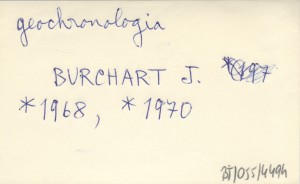 geochronologia
BURCHART J.
*1968, *1970
BJ/OSS/4494